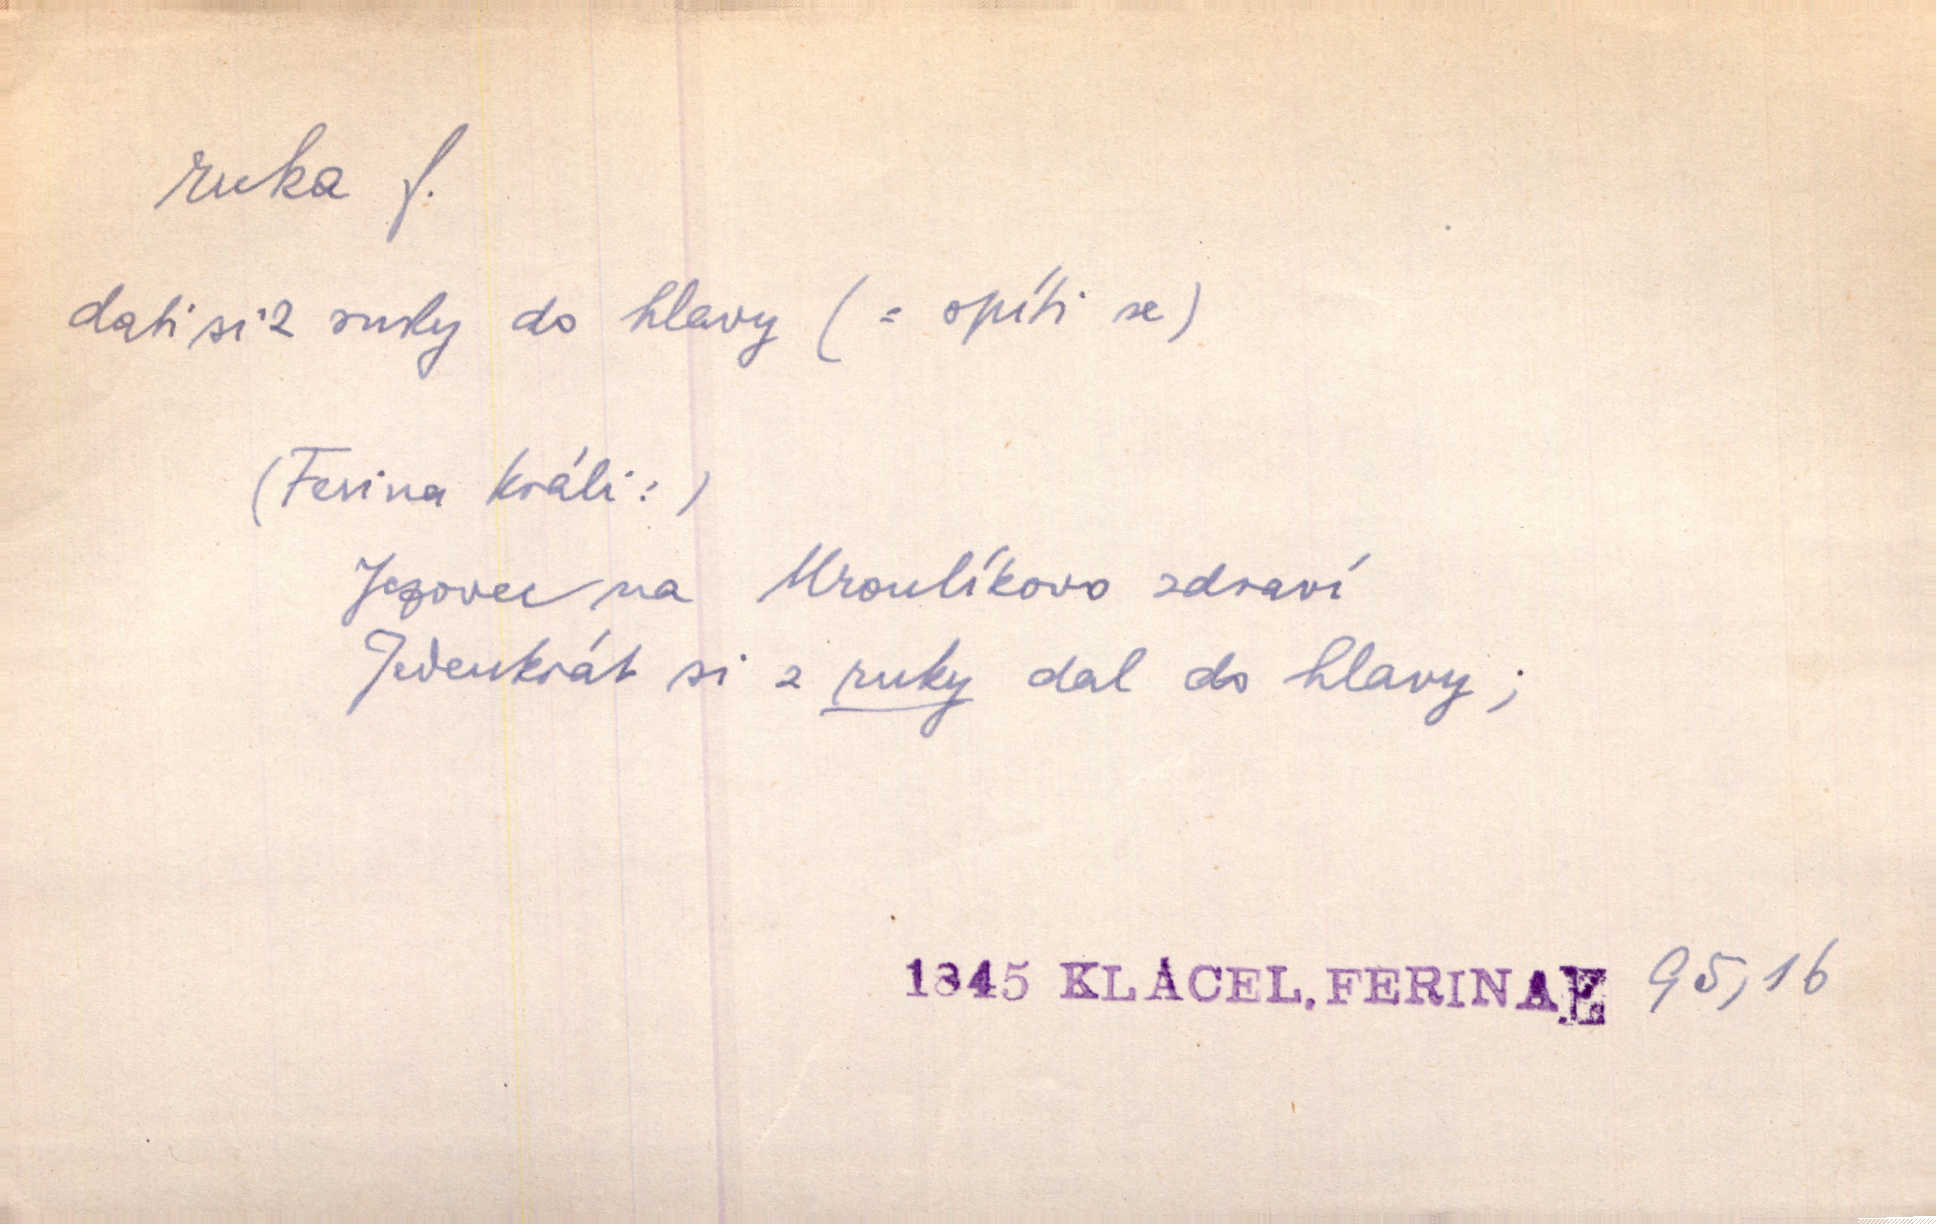 ruka f.
dati si z ruky do hlavy (= opíti se)
(Ferina králi:)
Jezovec na Mroulíkovo zdraví
Jedenkrát si z ruky dal do hlavy;
1845 KLÁCEL, FERINA E 95,16